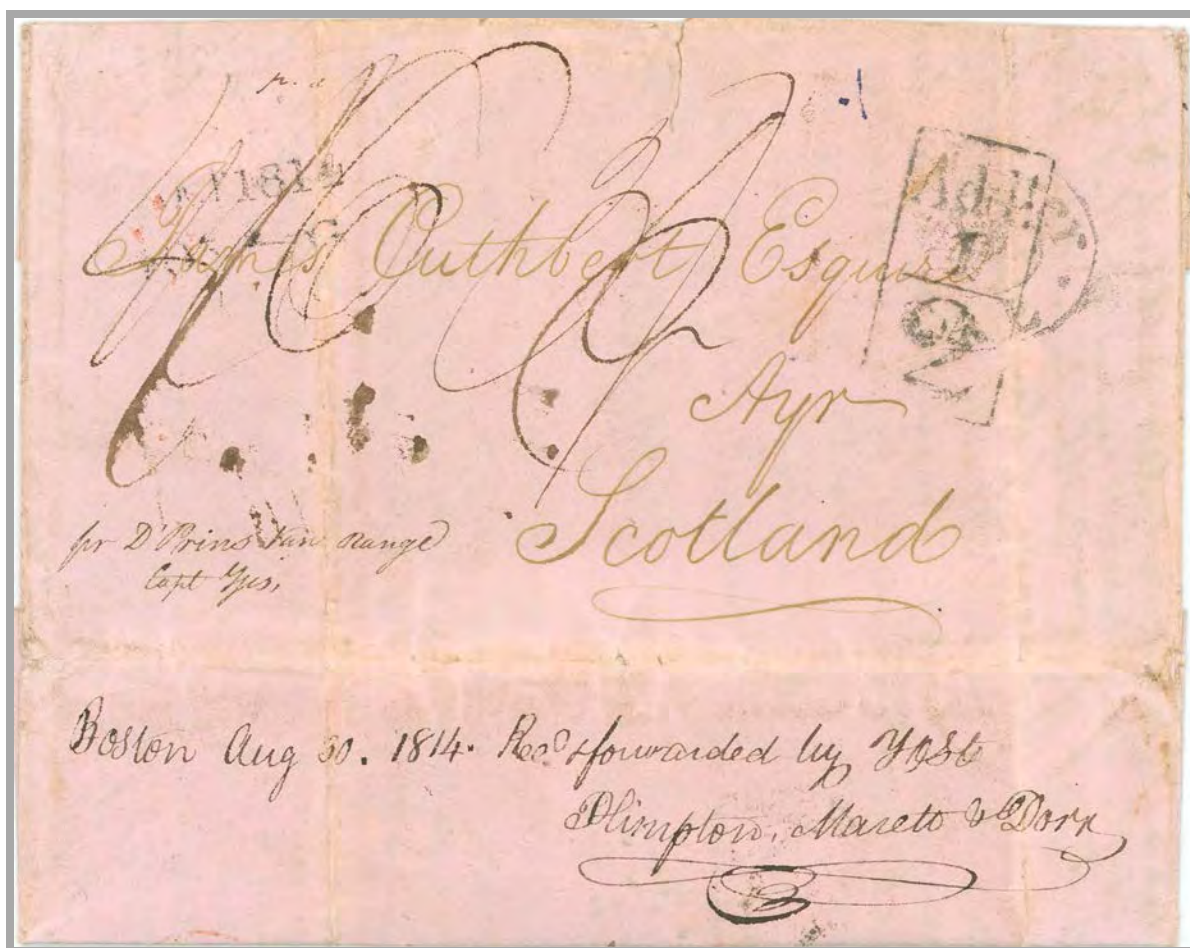 1814
James Cuthbert Esquire
Add'l
½
Ayr
Scotland
pr D'Prins Van Orange
Capt
Boston Aug 30. 1814. Recd & forwarded by
Plimpton, Marett & Dorr